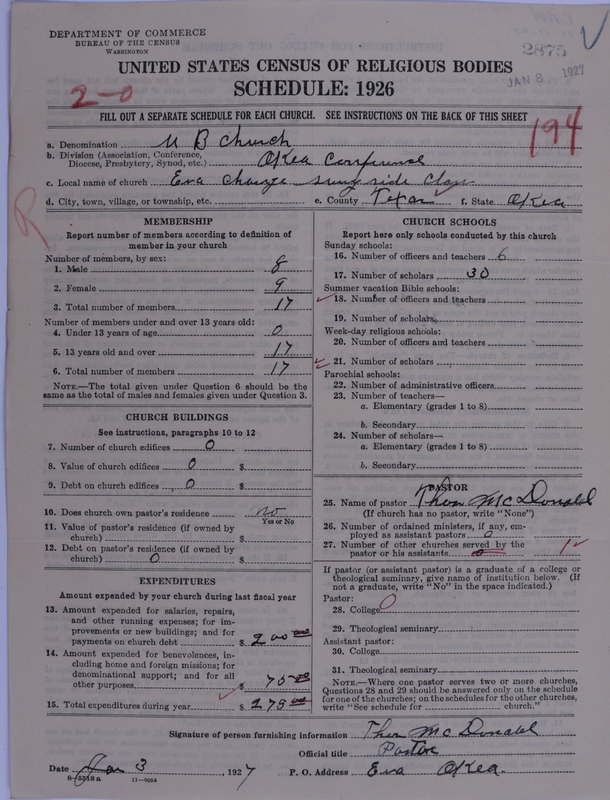 DEPARTMENT OF COMMERCE
BUREAU OF THE CENSUS
WASHINGTON
2875
JAN 8 1927
UNITED STATES CENSUS OF RELIGIOUS BODIES
SCHEDULE: 1926
2-0
FILL OUT A SEPARATE SCHEDULE FOR EACH CHURCH. SEE INSTRUCTIONS ON THE BACK OF THIS SHEET
194
a. Denomination U B Church
b. Division (Association, Conference, Diocese, Presbytery, Synod, etc.) Okla Conference
c. Local name of church Eva Charge Sunny side Class
d. City, town, village, or township, etc. e. County Texas f. State Okla
R
MEMBERSHIP
Report number of members according to definition of
member in your church
Number of members, by sex:
1. Male 8
2. Female 9
3. Total number of members 17
Number of members under and over 13 years old:
4. Under 13 years of age 0
5. 13 years old and over 17
6. Total number of members 17
NOTE.—The total given under Question 6 should be the
same as the total of males and females given under Question 3.
CHURCH BUILDINGS
See instructions, paragraphs 10 to 12
7. Number of church edifices 0
8. Value of church edifices 0 $
9. Debt on church edifices 0 $
10. Does church own pastor's residence no
Yes or No
11. Value of pastor's residence (if owned by
church) $
12. Debt on pastor's residence (if owned by
church) 0 $
EXPENDITURES
Amount expended by your church during last fiscal year
13. Amount expended for salaries, repairs,
and other running expenses; for im-
provements or new buildings; and for
payments on church debt $ 200 00
14. Amount expended for benevolences, in-
cluding home and foreign missions; for
denominational support; and for all
other purposes $ 75 00
15. Total expenditures during year $ 275 00
CHURCH SCHOOLS
Report here only schools conducted by this church
Sunday schools:
16. Number of officers and teachers 6
17. Number of scholars 30
Summer vacation Bible schools:
18. Number of officers and teachers
19. Number of scholars
Week-day religious schools:
20. Number of officers and teachers
21. Number of scholars
Parochial schools:
22. Number of administrative officers
23. Number of teachers—
a. Elementary (grades 1 to 8)
b. Secondary
24. Number of scholars—
a. Elementary (grades 1 to 8)
b. Secondary
PASTOR
25. Name of pastor Thos McDonald
(If church has no pastor, write "None")
26. Number of ordained ministers, if any, em-
ployed as assistant pastors 0
27. Number of other churches served by the
pastor or his assistants 0 1
If pastor (or assistant pastor) is a graduate of a college or
theological seminary, give name of institution below. (If
not a graduate, write "No" in the space indicated.)
Pastor:
28. College 0
29. Theological seminary
Assistant pastor:
30. College
31. Theological seminary
NOTE.—Where one pastor serves two or more churches,
Questions 28 and 29 should be answered only on the schedule
for one of the churches; on the schedules for the other churches,
write "See schedule for church."
Signature of person furnishing information Thos McDonald
Official title Pastor
Date Jan 3, 1927 P. O. Address Eva Okla.
11-9004